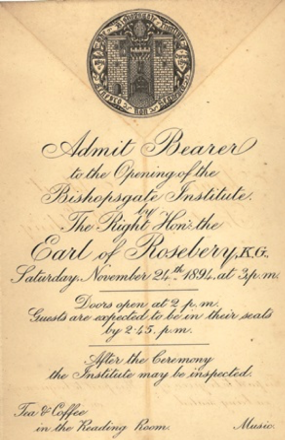 Admit Bearer
to the Opening of the
Bishopsgate Institute.
by
The Right Hon. the
Earl of Rosebery, K.G.,
Saturday, November 24th 1894, at 3 p.m.
Doors open at 2 p.m.
Guests are expected to be in their seats
by 2.45. p.m.
After the Ceremony
the Institute may be inspected.
Tea & Coffee
in the Reading Room.
Music.